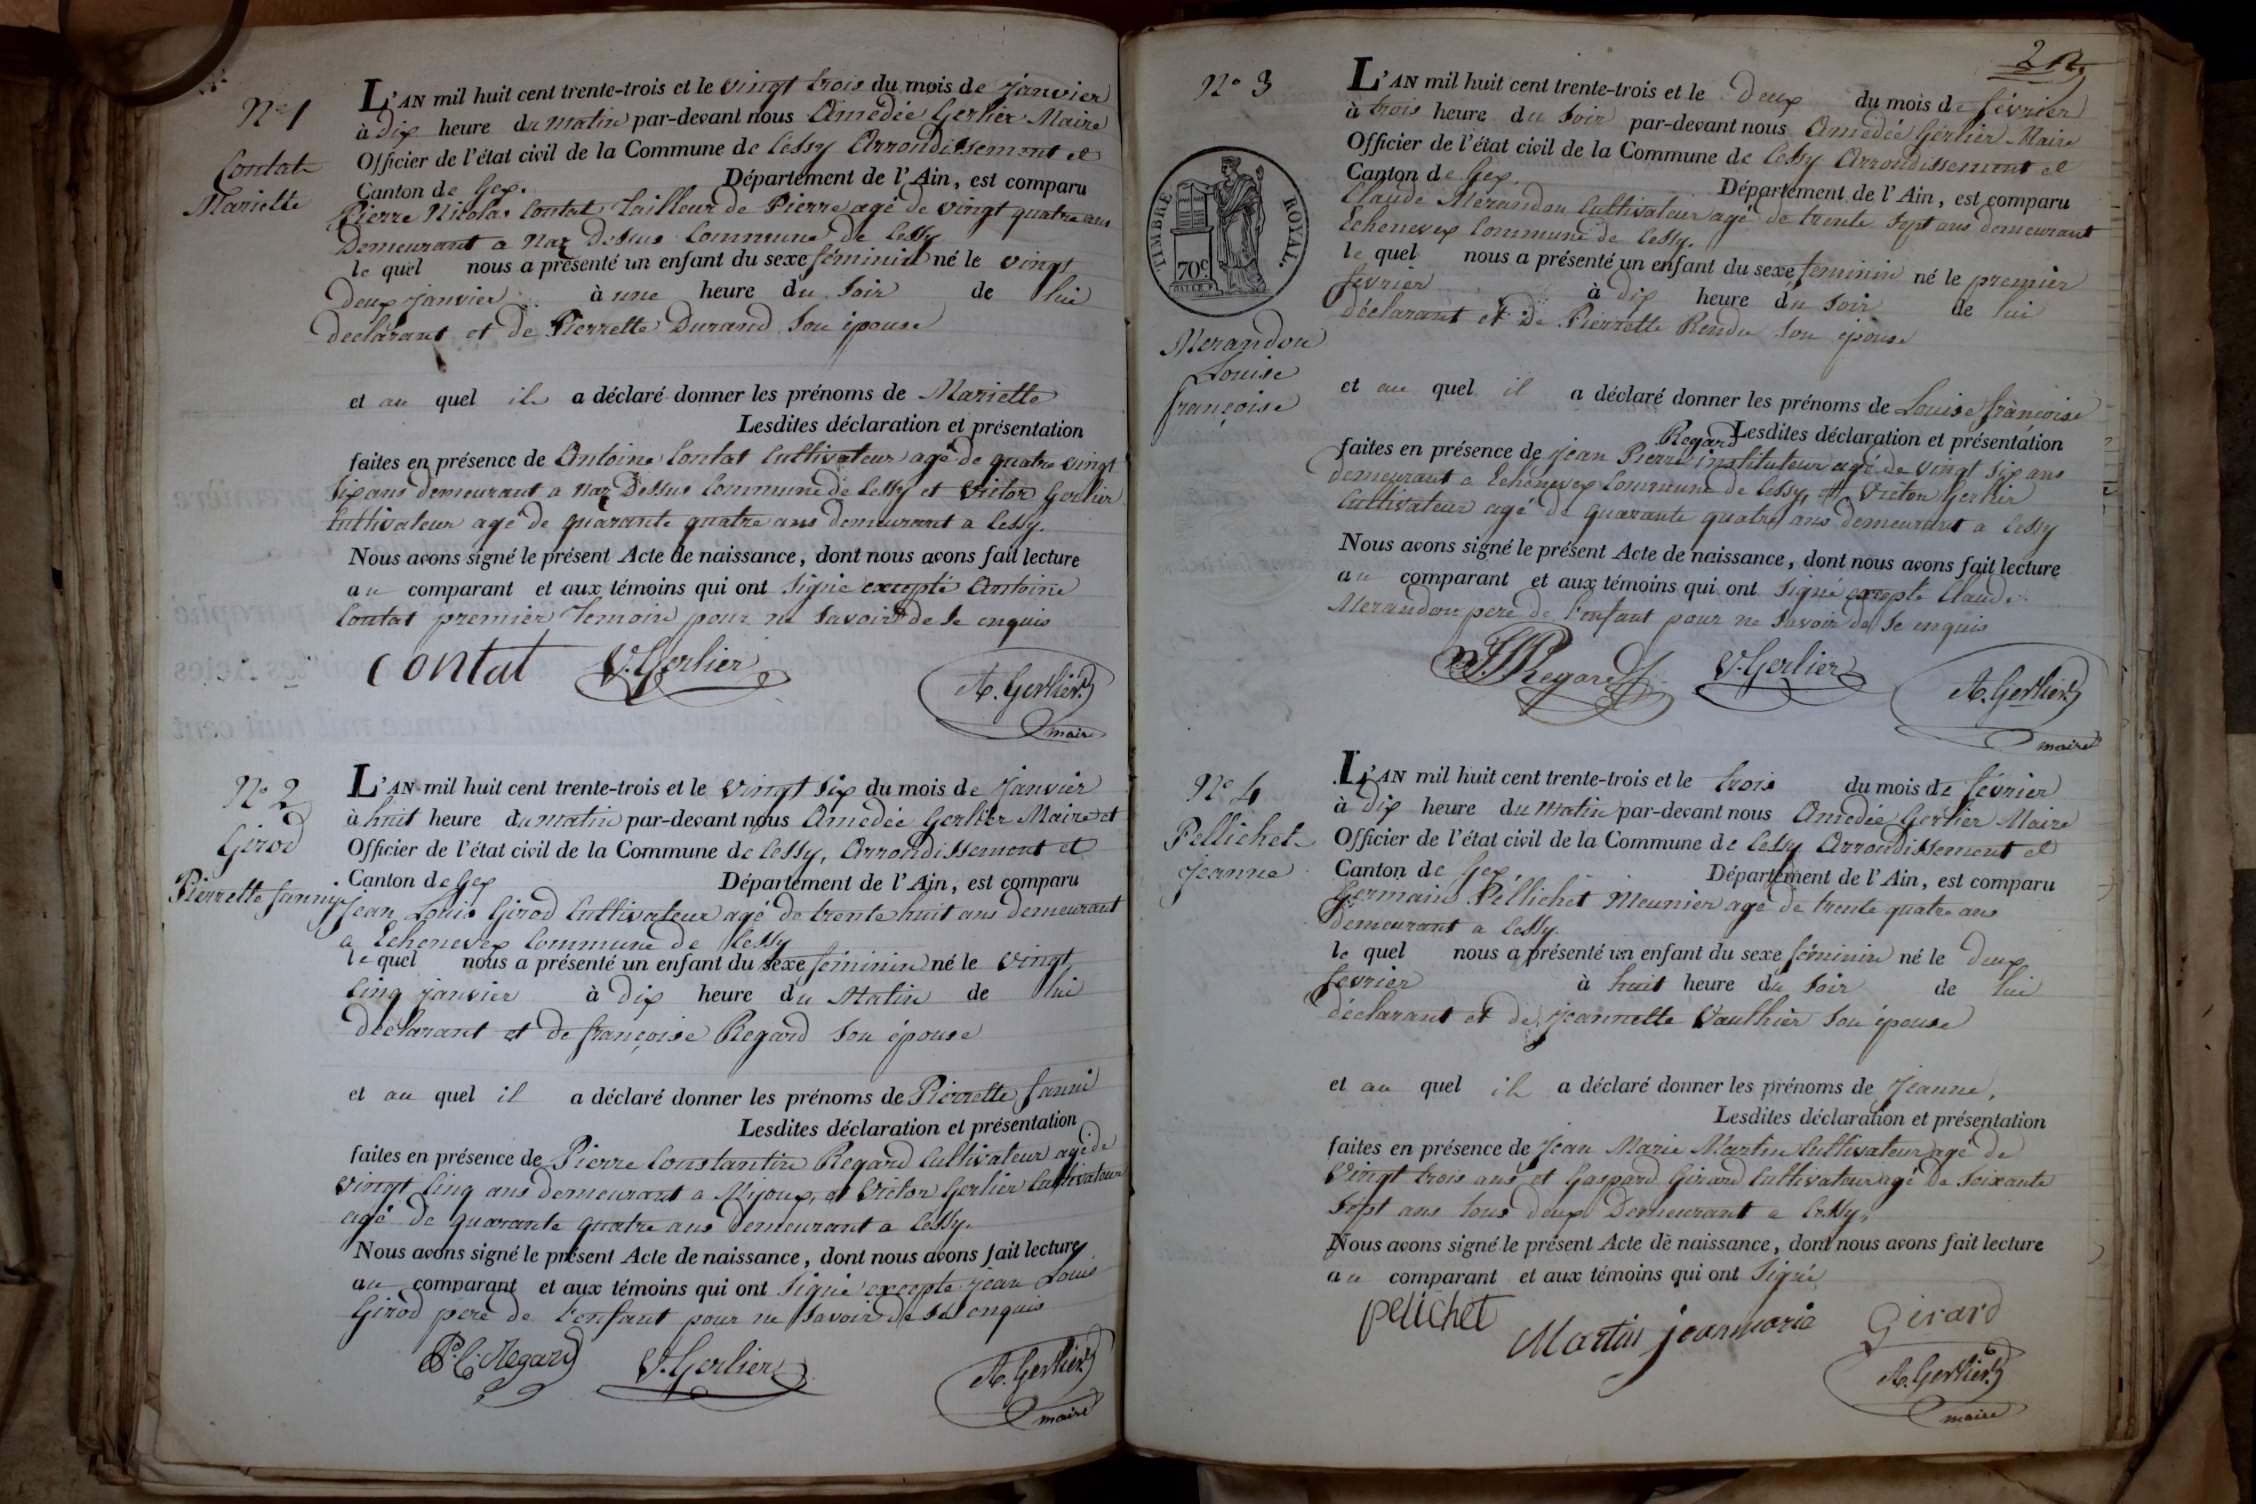 Nº 1
Contat
Mariette
L'AN mil huit cent trente-trois et le vingt trois du mois de Janvier
à dix heure du matin par-devant nous Amedée Gerlier Maire
Officier de l'état civil de la Commune de Cessy Arrondissement et
Canton de Gex. Département de l'Ain, est comparu
Pierre Nicolas Contat tailleur de Pierre agé de vingt quatre ans
Demeurant a Naz Dessus Commune de Cessy
le quel nous a présenté un enfant du sexe féminin né le vingt
deux janvier à une heure du Soir de lui
déclarant et de Pierrette Durand Son épouse
et au quel il a déclaré donner les prénoms de Mariette
Lesdites déclaration et présentation
faites en présence de Antoine Contat Cultivateur agé de quatre vingt
Six ans demeurant a Naz Dessus Commune de Cessy et Victor Gerlier
Cultivateur agé de quarante quatre ans demeurant a Cessy.
Nous avons signé le présent Acte de naissance, dont nous avons fait lecture
au comparant et aux témoins qui ont Signé excepté Antoine
Contat premier temoin pour ne Savoir de Ce enquis
Contat V. Gerlier
A. Gerlier
maire
Nº 2
Girod
Pierrette fanny
L'AN mil huit cent trente-trois et le vingt Six du mois de Janvier
à huit heure du matin par-devant nous Amedée Gerlier Maire et
Officier de l'état civil de la Commune de Cessy, Arrondissement et
Canton de Gex Département de l'Ain, est comparu
Jean Louis Girod Cultivateur agé de trente huit ans demeurant
a Echenevex Commune de Cessy
le quel nous a présenté un enfant du sexe féminin né le vingt
Cinq janvier à dix heure du Matin de lui
déclarant et de françoise Regard Son épouse
et au quel il a déclaré donner les prénoms de Pierrette fanni
Lesdites déclaration et présentation
faites en présence de Pierre Constantin Regard Cultivateur agé de
vingt Cinq ans demeurant a Mijoux, et Victor Gerlier Cultivateur
agé de quarante quatre ans demeurant a Cessy.
Nous avons signé le présent Acte de naissance, dont nous avons fait lecture
au comparant et aux témoins qui ont Signé excepté Jean Louis
Girod pere de l'enfant pour ne Savoir de Ce enquis
P. C. Regard V. Gerlier
A. Gerlier
maire
2
Nº 3
TIMBRE ROYAL.
70 c.
Merandon
Louise
françoise
L'AN mil huit cent trente-trois et le Deux du mois de février
à trois heure du Soir par-devant nous Amedée Gerlier Maire
Officier de l'état civil de la Commune de Cessy Arrondissement et
Canton de Gex. Département de l'Ain, est comparu
Claude Merandon Cultivateur agé de trente Sept ans demeurant
Echenevex Commune de Cessy.
le quel nous a présenté un enfant du sexe feminin né le premier
février à dix heure du Soir de lui
déclarant et de Pierrette Rendu Son épouse
et au quel il a déclaré donner les prénoms de Louise françoise
Lesdites déclaration et présentation
faites en présence de Jean Pierre Regard instituteur agé de vingt Six ans
demeurant a Echenevex Commune de Cessy, et Victor Gerlier
Cultivateur agé de quarante quatre ans demeurant a Cessy
Nous avons signé le présent Acte de naissance, dont nous avons fait lecture
au comparant et aux témoins qui ont Signé excepté Claude
Merandon pere de l'enfant pour ne Savoir de Ce enquis
Regard V. Gerlier
A. Gerlier
maire
Nº 4
Pellichet
Jeanne
L'AN mil huit cent trente-trois et le trois du mois de février
à dix heure du matin par-devant nous Amedée Gerlier Maire
Officier de l'état civil de la Commune de Cessy Arrondissement et
Canton de Gex. Département de l'Ain, est comparu
Germain Pellichet Meunier agé de trente quatre ans
demeurant a Cessy.
le quel nous a présenté un enfant du sexe féminin né le Deux
février à huit heure du Soir de lui
déclarant et de jeannette Vaulhier Son épouse
et au quel il a déclaré donner les prénoms de Jeanne,
Lesdites déclaration et présentation
faites en présence de Jean Marie Martin Cultivateur agé de
Vingt trois ans et Gaspard Girard Cultivateur agé de Soixante
Sept ans tous deux Demeurant a Cessy,
Nous avons signé le présent Acte de naissance, dont nous avons fait lecture
au comparant et aux témoins qui ont Signé
pelichet Martin jeanmarie Girard
A. Gerlier
maire